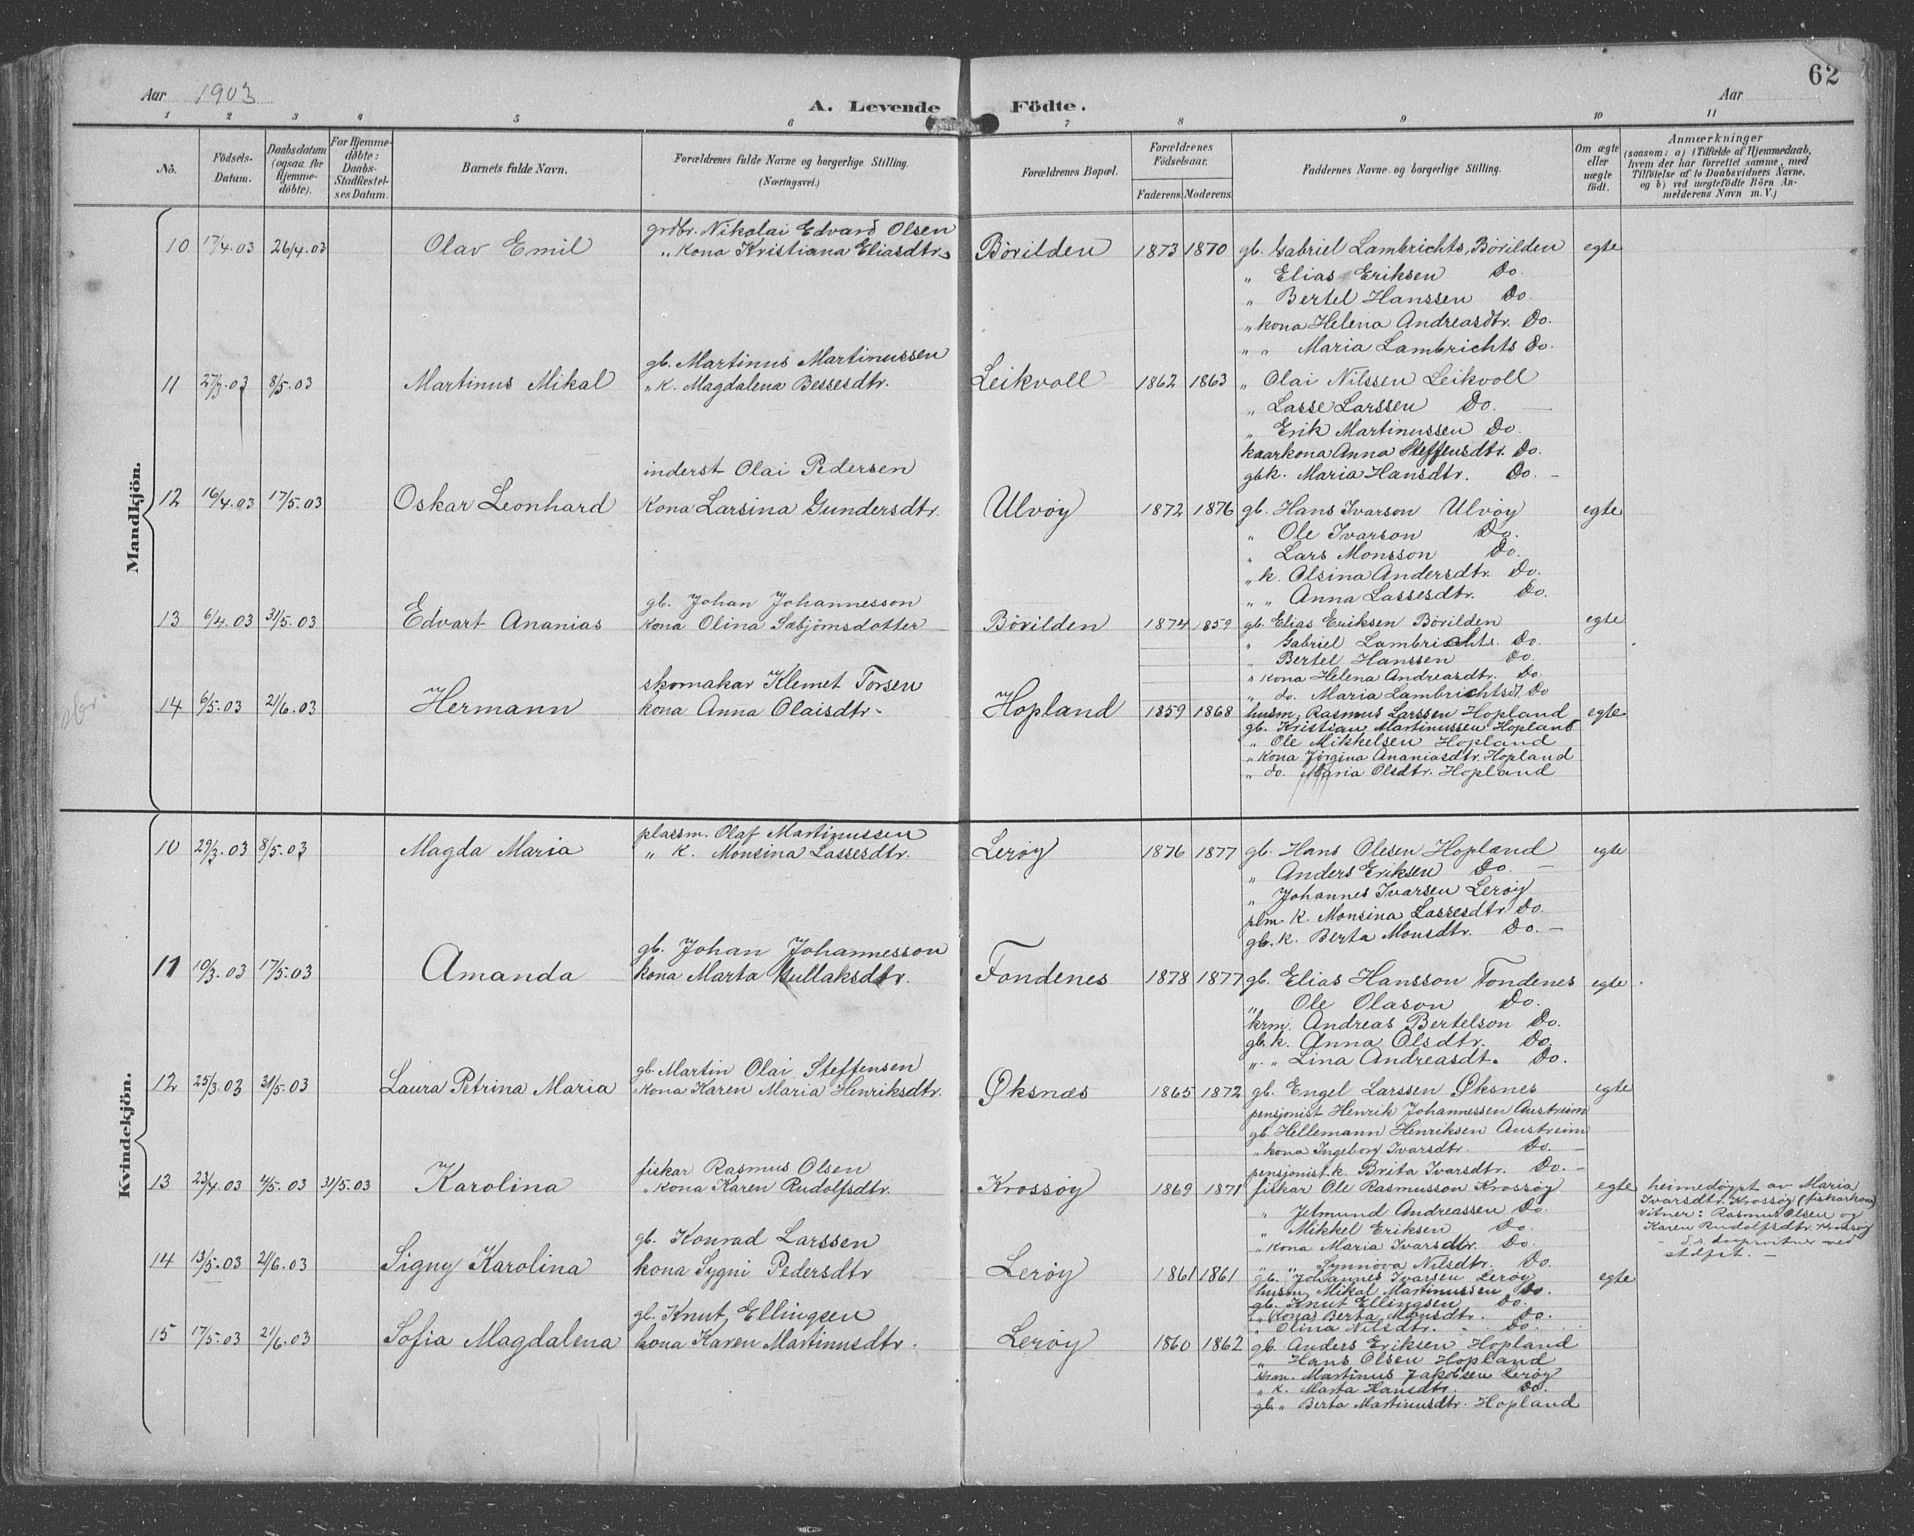 62
Aar 1903
A. Levende Födte.
Aar
1 2 3 4 5 6 7 8 9 10 11
No.
Födsels-Datum.
Daabsdatum (ogsaa for Hjemmedöbte).
For Hjemmedöbte: Daabs-Stadfæstelses Datum.
Barnets fulde Navn.
Forældrenes fulde Navne og borgerlige Stilling.
(Næringsvei.)
Forældrenes Bopæl.
Forældrenes Födselsaar.
Faderens. Moderens.
Faddernes Navne og borgerlige Stilling.
Om ægte eller uægte födt.
Anmærkninger
(saasom: a) i Tilfælde af Hjemmedaab, hvem der har forrettet samme, med Tilföielse af to Daabsvidners Navne, og b) ved uægtefödte Börn Anmelderens Navn m. V.)
Mandkjön.
grdbr. Nikolai Edvard Olsen
10 17/4.03 26/4.03 Olav Emil „ kona Kristiana Eliasdtr. Børilden 1873 1870 gb. Gabriel Lambrichts Børilden egte
„ Elias Eriksen Do.
„ Bertel Hanssen Do.
„ kona Helena Andreasdtr. Do.
„ „ Maria Lambrichts Do.
gb. Martinus Martinussen
11 27/3.03 8/5.03 Martinus Mikal „ k. Magdalena Bessesdtr. Leikvoll 1862 1863 „ Olai Nilssen Leikvoll
„ Lasse Larssen Do. —
„ Erik Martinussen Do.
kaarkona Anna Steffensdtr. Do.
gbk. Maria Hansdtr. Do. –
inderst Olai Pedersen
12 16/4.03 17/5.03 Oskar Leonhard kona Larsina Gundersdtr. Ulvøy 1872 1876 gb. Hans Ivarson Ulvøy egte
„ Ole Ivarson Do.
„ Lars Monsson Do.
„ k. Olsina Andersdtr. Do.
„ „ Anna Lassesdtr. Do.
gb. Johan Johannesson
13 6/4.03 31/5.03 Edvart Ananias kona Olina Sæbjörnsdotter Børilden 1874 1859 gb. Elias Eriksen Børilden egte
„ Gabriel Lambrichts. Do.
„ Bertel Hanssen Do.
„ kona Helena Andreasdtr. Do.
„ do. Maria Lambrichtsd. Do
skomakar Klemet Torsen
14 6/5.03 21/6.03 Hermann kona Anna Olaisdtr. Hopland 1859 1868 husm. Rasmus Larssen Hopland egte
gb. Kristian Martinussen Hopland
„ Ole Mikkelsen Hopland
„ kona Jørgina Ananiasdtr. Hopland
„ do. Maria Olsdtr. Hopland
Kvindekjön.
plassm. Olaf Martinussen
10 29/3.03 8/5.03 Magda Maria „ k. Monsina Lassesdtr. Lerøy 1876 1877 gb. Hans Olesen Hopland egte
„ Anders Eriksen Do. –
„ Johannes Ivarsen Lerøy
plm. k. Monsina Lassesdtr. Do.
gb. k. Berta Monsdtr. Do. –
gb. Johan Johannesson
11 10/3.03 17/5.03 Amanda kona Marta Gullaksdtr. Fondenes 1878 1877 gb. Elias Hansson Fondenes egte
„ Ole Olason Do.
krm. Andreas Bertelson Do.
gb. k. Anna Olsdtr. Do.
„ „ Lina Andreasdt. Do.
gb. Martin Olai Steffensen
12 25/3.03 31/5.03 Laura Petrina Maria „ kona Karen Maria Henriksdtr. Øksnæs 1865 1872 gb. Engel Larssen Øksnes egte
pensjonist Henrik Johannessen Austreim
gb. Hellemann Henriksen Austreim
„ kona Ingeborg Ivarsdtr. Do. –
pensjonist.k. Brita Ivarsdtr. Do. –
fiskar Rasmus Olsen
13 23/4.03 4/5.03 31/5.03 Karolina „ kona Karen Rudolfsdtr. Krossøy 1869 1871 fiskar Ole Rasmusson Krossøy egte heimedøypt av Maria
„ Jelmund Andreassen Do. Ivarsdtr. Krossøy (fiskarkona)
„ Mikkel Eriksen Do. Vitner: Rasmus Olsen og
„ kona Maria Ivarsdtr. Do. Karen Rudolfsdtr. Krossøy
„ „ Synnova Nilsdtr. Do. stdfst. –
gb. Konrad Larssen
14 13/5.03 21/6.03 Signy Karolina kona Sygni Pedersdtr Lerøy 1861 1861 gb. Johannes Ivarsen Lerøy egte
husm. Mikal Martinussen Do.
gb. Knut Ellingsen Do.
„ Kona Berta Monsdtr. Do.
„ Olina Nilsdtr. Do.
gb. Knut Ellingsen
15 17/5.03 21/6.03 Sofia Magdalena kona Karen Martinusdtr. Lerøy 1860 1862 gb. Anders Eriksen Hopland
„ Hans Olsen Hopland
krm. Martinus Jakobsen Lerøy
„ k. Marta Hansdtr. Do.
gb. „ Berta Martinusdtr. Hopland